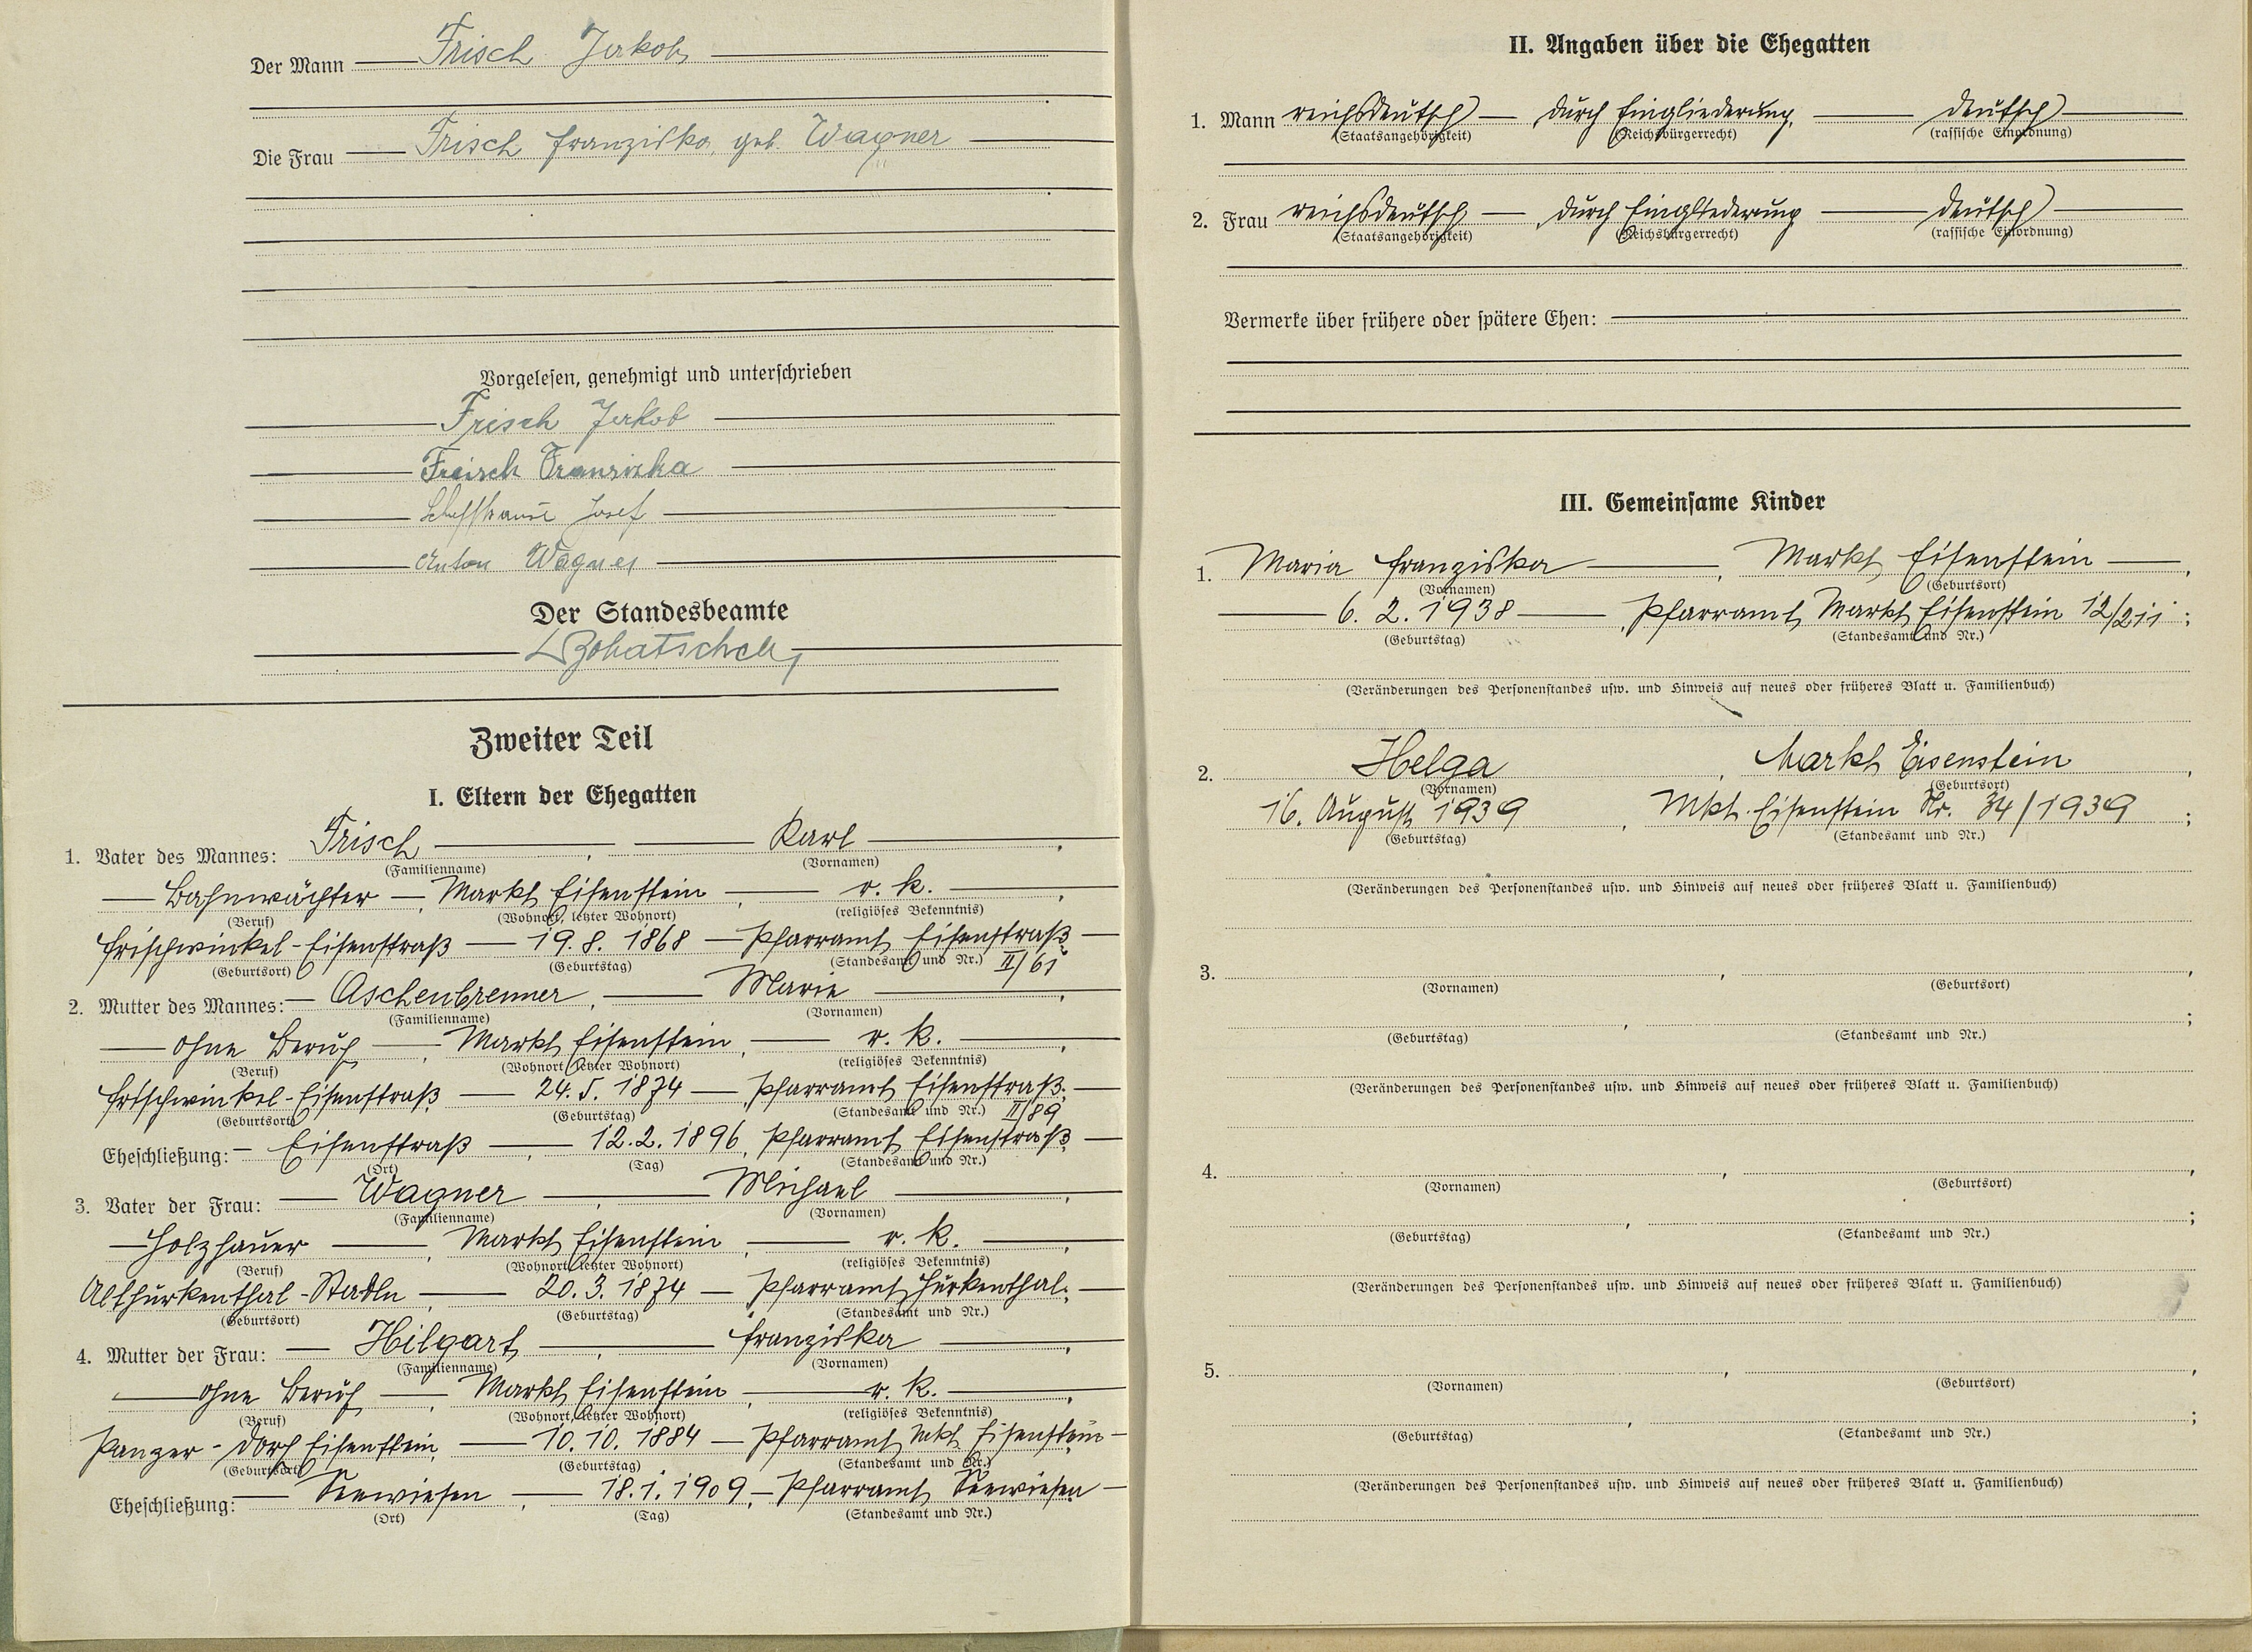 Der Mann Frisch Jakob
Die Frau Frisch Franziska, geb. Wagner
Vorgelesen, genehmigt und unterschrieben
Frisch Jakob
Frisch Franziska
Josef
Anton Wagner
Der Standesbeamte
Zweiter Teil
I. Eltern der Ehegatten
1. Vater des Mannes: Frisch, Karl,
(Familienname) (Vornamen)
Bahnwächter, Markt Eisenstein, r. k.,
(Beruf) (Wohnort, letzter Wohnort) (religiöses Bekenntnis)
Frischwinkel-Eisenstraß 19. 8. 1868 Pfarramt Eisenstraß
(Geburtsort) (Geburtstag) (Standesamt und Nr.) II/61
2. Mutter des Mannes: Aschenbrenner, Marie,
(Familienname) (Vornamen)
ohne Beruf, Markt Eisenstein, r. k.,
(Beruf) (Wohnort, letzter Wohnort) (religiöses Bekenntnis)
Frischwinkel-Eisenstraß 24. 5. 1874 Pfarramt Eisenstraß;
(Geburtsort) (Geburtstag) (Standesamt und Nr.) II/89
Eheschließung: Eisenstraß, 12. 2. 1896, Pfarramt Eisenstraß
(Ort) (Tag) (Standesamt und Nr.)
3. Vater der Frau: Wagner, Michael,
(Familienname) (Vornamen)
Holzhauer, Markt Eisenstein, r. k.,
(Beruf) (Wohnort, letzter Wohnort) (religiöses Bekenntnis)
Althurkenthal-Stadln, 20. 3. 1874 Pfarramt Hurkenthal;
(Geburtsort) (Geburtstag) (Standesamt und Nr.)
4. Mutter der Frau: Hilgart, Franziska,
(Familienname) (Vornamen)
ohne Beruf, Markt Eisenstein, r. k.,
(Beruf) (Wohnort, letzter Wohnort) (religiöses Bekenntnis)
Panzer-Dorf Eisenstein, 10. 10. 1884 Pfarramt Mkt. Eisenstein
(Geburtsort) (Geburtstag) (Standesamt und Nr.)
Eheschließung: Seewiesen, 18. 1. 1909, Pfarramt Seewiesen
(Ort) (Tag) (Standesamt und Nr.)
II. Angaben über die Ehegatten
1. Mann reichsdeutsch, durch Eingliederung, deutsch
(Staatsangehörigkeit) (Reichsbürgerrecht) (rassische Einordnung)
2. Frau reichsdeutsch, durch Eingliederung deutsch
(Staatsangehörigkeit) (Reichsbürgerrecht) (rassische Einordnung)
Vermerke über frühere oder spätere Ehen:
III. Gemeinsame Kinder
1. Maria Franziska, Markt Eisenstein,
(Vornamen) (Geburtsort)
6. 2. 1938, Pfarramt Markt Eisenstein 12/211;
(Geburtstag) (Standesamt und Nr.)
(Veränderungen des Personenstandes usw. und Hinweis auf neues oder früheres Blatt u. Familienbuch)
2. Helga, Markt Eisenstein,
(Vornamen) (Geburtsort)
16. August 1939, Mkt. Eisenstein Nr. 34/1939;
(Geburtstag) (Standesamt und Nr.)
(Veränderungen des Personenstandes usw. und Hinweis auf neues oder früheres Blatt u. Familienbuch)
3. , ,
(Vornamen) (Geburtsort)
, ;
(Geburtstag) (Standesamt und Nr.)
(Veränderungen des Personenstandes usw. und Hinweis auf neues oder früheres Blatt u. Familienbuch)
4. , ,
(Vornamen) (Geburtsort)
, ;
(Geburtstag) (Standesamt und Nr.)
(Veränderungen des Personenstandes usw. und Hinweis auf neues oder früheres Blatt u. Familienbuch)
5. , ,
(Vornamen) (Geburtsort)
, ;
(Geburtstag) (Standesamt und Nr.)
(Veränderungen des Personenstandes usw. und Hinweis auf neues oder früheres Blatt u. Familienbuch)